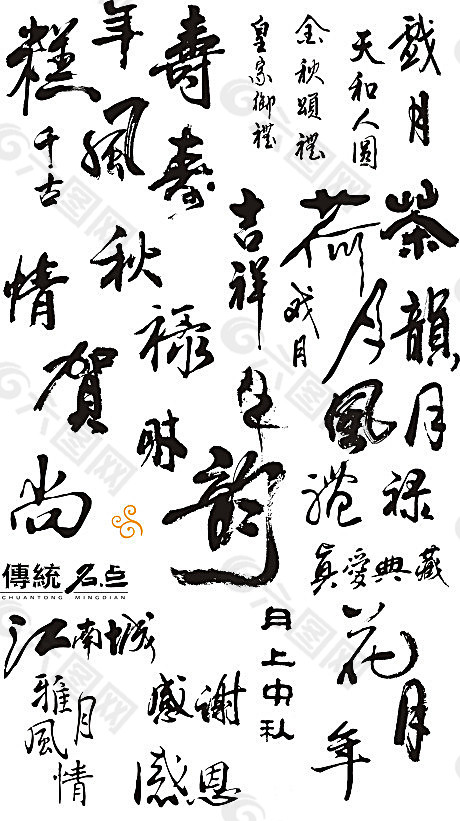 糕
年
壽
皇家御禮
金秋頌禮
天和人圓
戲月
千古
風
壽
情
秋
吉祥
荷
茶
祿
戏月
月
韻
賀
财
月
風
月
尚
韵
禮
禄
真愛典藏
傳統名点
CHUANTONG MINGDIAN
江南城
月上中秋
花
月
年
雅風
月情
感謝
感恩